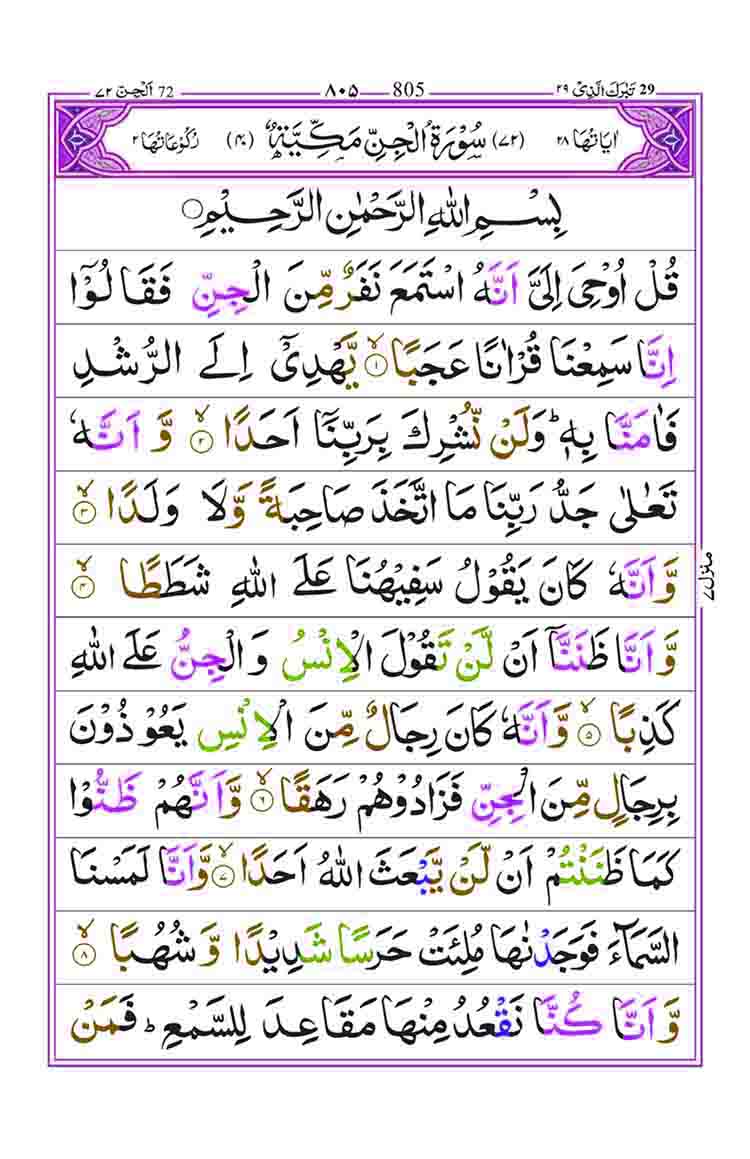 29 تَبٰرَكَ الَّذِیْ ۲۹ — 805 — ۸۰۵ — 72 اَلْجِنّ ۷۲
اٰیَاتُهَا ۲۸ (۷۲) سُوْرَةُ الْجِنِّ مَكِّیَّةٌ (۴۰) رُكُوْعَاتُهَا ۲
بِسْمِ اللّٰهِ الرَّحْمٰنِ الرَّحِیْمِ۝
قُلْ اُوْحِیَ اِلَیَّ اَنَّهُ اسْتَمَعَ نَفَرٌ مِّنَ الْجِنِّ فَقَالُوْۤا
اِنَّا سَمِعْنَا قُرْاٰنًا عَجَبًا ۙ۝۱ یَّهْدِیْۤ اِلَی الرُّشْدِ
فَاٰمَنَّا بِهٖ ؕ وَلَنْ نُّشْرِكَ بِرَبِّنَاۤ اَحَدًا ۙ۝۲ وَّ اَنَّهٗ
تَعٰلٰی جَدُّ رَبِّنَا مَا اتَّخَذَ صَاحِبَةً وَّلَا وَلَدًا ۙ۝۳
وَّاَنَّهٗ كَانَ یَقُوْلُ سَفِیْهُنَا عَلَی اللّٰهِ شَطَطًا ۙ۝۴
وَّاَنَّا ظَنَنَّاۤ اَنْ لَّنْ تَقُوْلَ الْاِنْسُ وَالْجِنُّ عَلَی اللّٰهِ
كَذِبًا ۙ۝۵ وَّاَنَّهٗ كَانَ رِجَالٌ مِّنَ الْاِنْسِ یَعُوْذُوْنَ
بِرِجَالٍ مِّنَ الْجِنِّ فَزَادُوْهُمْ رَهَقًا ۙ۝۶ وَّاَنَّهُمْ ظَنُّوْا
كَمَا ظَنَنْتُمْ اَنْ لَّنْ یَّبْعَثَ اللّٰهُ اَحَدًا ۙ۝۷ وَّاَنَّا لَمَسْنَا
السَّمَآءَ فَوَجَدْنٰهَا مُلِئَتْ حَرَسًا شَدِیْدًا وَّ شُهُبًا ۙ۝۸
وَّاَنَّا كُنَّا نَقْعُدُ مِنْهَا مَقَاعِدَ لِلسَّمْعِ ؕ فَمَنْ
منزل۷